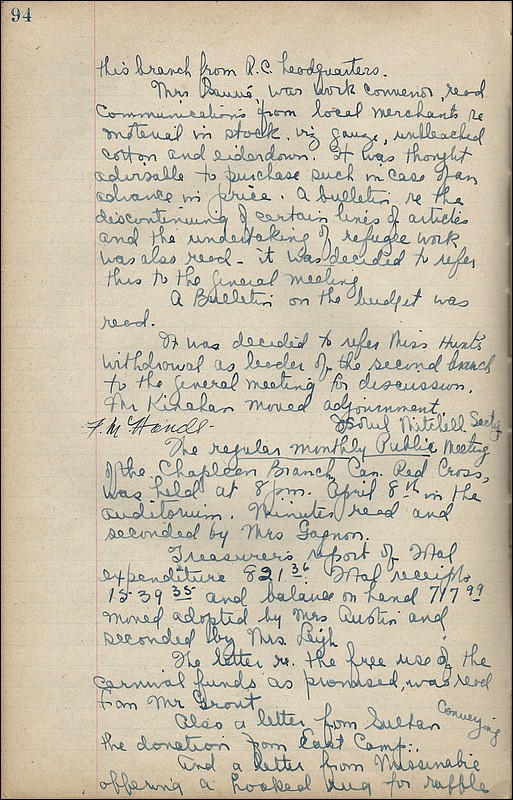 94
this branch from R.C. headquarters.
Mrs was work convenor, read
communications from local merchants re
material in stock. viz gauze, unbleached
cotton and eiderdown. It was thought
advisable to purchase such in case of an
advance in price. A bulletin re the
discontinuing of certain lines of articles
and the undertaking of refugee work
was also read - it was decided to refer
this to the general meeting
A Bulletin on the budget was
read.
It was decided to refer Miss Hunt's
withdrawal as leader of the second branch
to the general meeting for discussion.
Mr Kinahan moved adjournment.
Mitchell Secty
The regular monthly Public Meeting
of the Chapleau Branch, Can. Red Cross,
was held at 8 p.m. April 8th in the
auditorium. Minutes read and
seconded by Mrs Gagnon.
Treasurer's report of total
expenditure 821 36 Total receipts
1539 35 and balance on hand 717 99
moved adopted by Mrs Austin and
seconded by Mrs. Leigh
The letter re. the free use of the
carnival funds as promised, was read
from Mr Grout
Also a letter from Sultan Conveying
the donation from East Camp.
And a letter from Missinabie
offering a hooked rug for raffle